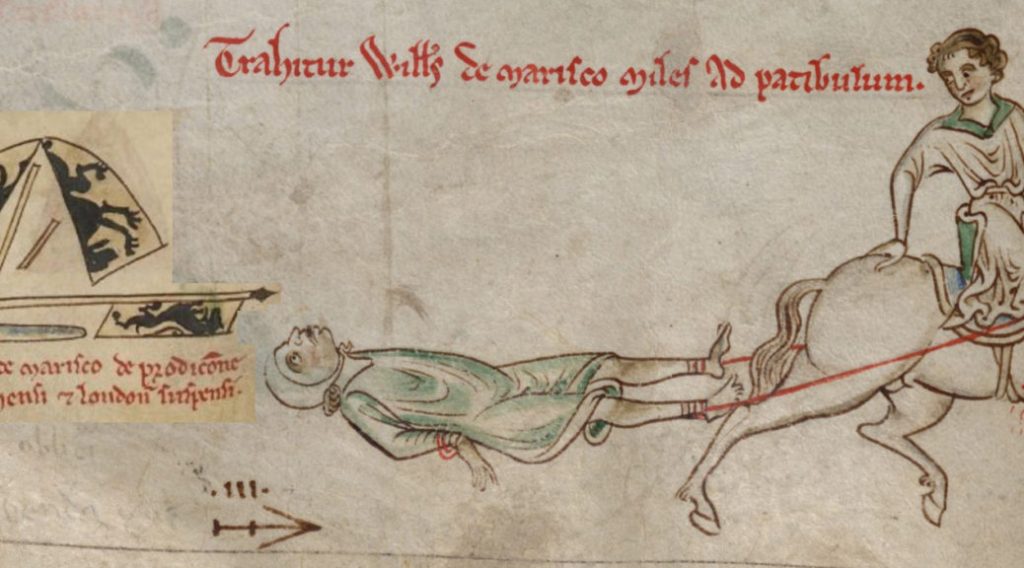 Trahitur Willƺ de marisco miles Ad patibulum.
de marisco de prodicōne
hensi ⁊ london̄ suspensi.
.III.